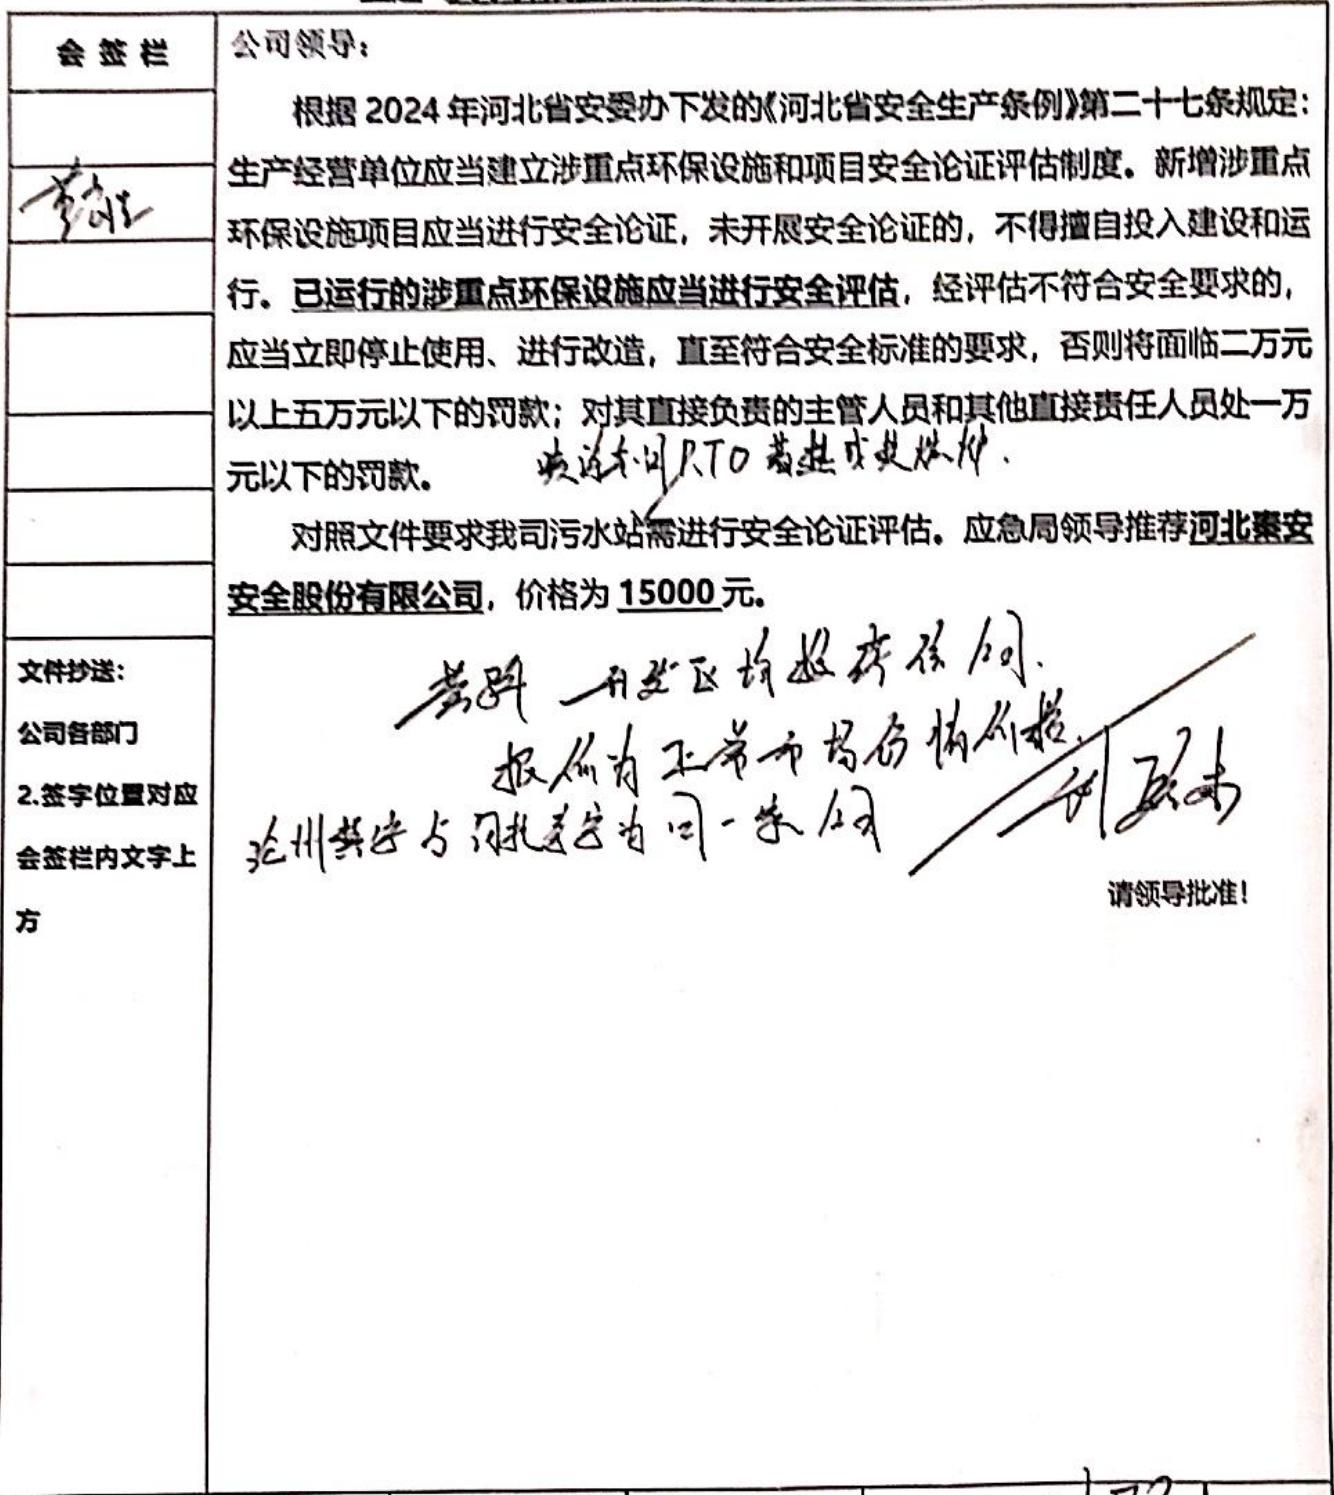 会 签 栏
公司领导：
根据 2024 年河北省安委办下发的《河北省安全生产条例》第二十七条规定：
生产经营单位应当建立涉重点环保设施和项目安全论证评估制度。新增涉重点
环保设施项目应当进行安全论证，未开展安全论证的，不得擅自投入建设和运
行。已运行的涉重点环保设施应当进行安全评估，经评估不符合安全要求的，
应当立即停止使用、进行改造，直至符合安全标准的要求，否则将面临二万元
以上五万元以下的罚款；对其直接负责的主管人员和其他直接责任人员处一万
元以下的罚款。
RTO
对照文件要求我司污水站需进行安全论证评估。应急局领导推荐河北秦安
安全股份有限公司，价格为 15000 元。
开发区均
报价为正常市场价格
沧州 与 为同一家公司
请领导批准！
文件抄送：
公司各部门
2.签字位置对应
会签栏内文字上
方